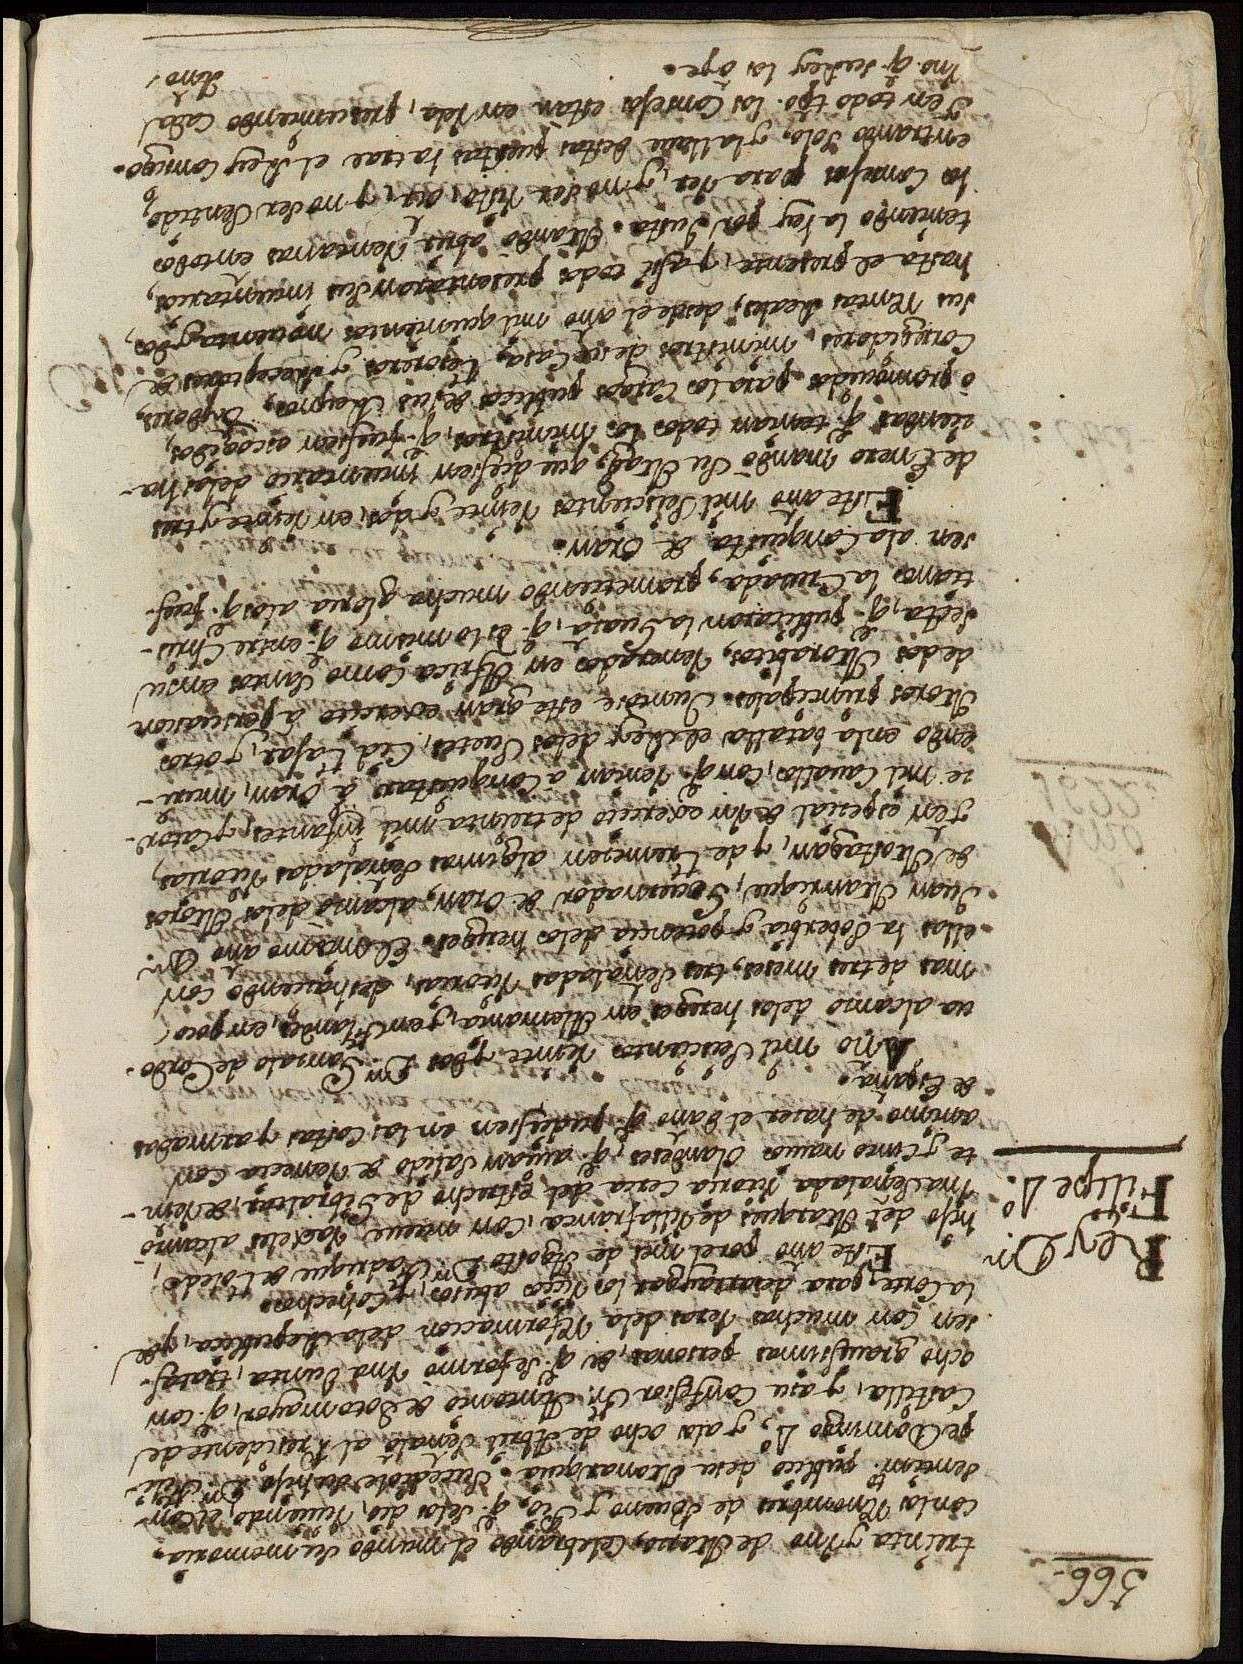 366.
treinta y Vno de Março, Celebrando el mundo su memoria,
con los Renombres de Bueno, y Pio, q. se los dio, viuendo, el con-
sentim.to publico desu Monarquia. Sucediole su hijo D.n Feli-
pe Domingo 4.º y alos ocho de Abril señalò al Presidente de
Castilla, y asu Confessor Fr. Antonio de Sotomayor, q. con
ocho grauissimas personas, de q. se formò Vna Junta, tratas-
sen con muchas veras dela Reformacion dela Republica, y de
la Corte, para desarraygar los vicios, abusos, y Cohechos.
Rey D.n
Filipe 4.º
Este año por el mes de Agosto D.n Fadrique de Toledo,
hijo del Marques de Villafranca, con nueue Vaxeles alcançò
Vna señalada Vitoria cerca del estrecho de Gibraltar, de vein-
te y cinco nauios Olandeses, q. auian salido de Venecia con
animo de hacer el daño q. pudiessen en las Costas y armadas
de España.
Año mil seiscientos veinte y dos D.n Gonzalo de Cordo-
ua alcançò delos hereges en Alemania, y en Flandes, en poco
mas de tres meses, tres señaladas Vitorias, deshaciendo con
ellas la Soberbia y potencia delos hereges. El mismo año D.n
Juan Manrique, Gouernador de Oran, alcançò delos Moros
de Mostagan, y de Tremecen algunas señaladas Vitorias,
y en especial de Vn exercito de treinta mil infantes, y Cator-
ce mil Cauallos, con q. venian a Conquistar à Oran, muri-
endo en la batalla el Rey delos Suetes, Cid Cafar, y otros
Moros principales. Juntòse este gran exercito à persuasion
de dos Morabitos, venerados en Africa como Santos en su
secta, q. publicaron la Guasia, q. es lo mismo q. entre Chris-
tianos la Cruzada, prometiendo mucha gloria alos q. fues-
sen ala Conquista de Oran.
Año
1622.
Este año mil seiscientos veinte y dos, en catorce y tres
de Enero mandò su Mag.d que diessen inuentario delas ha-
ciendas q. tenian todos los Ministros, q. fuessen escogidos,
ò promouidos para los Cargos publicos de sus Reynos, Oydores,
Corregidores, ministros de su Casa, Tesoreros, y Receptores de
sus Rentas Reales, desde el año mil quinientos nouenta y dos,
hasta el presente, y assi todos presentaron sus inuentarios,
teniendo la ley por Justa. Mandò abrir Ventanas en todos
los Consejos para ver, y no ser visto, oir, y no ser sentido,
entrando solo, y la llaue destas puertas la trae el Rey consigo.
Y en todo tpo. los Consejos estan en Vela, presumiendo cada
Vno q. su Rey los oye.
Año